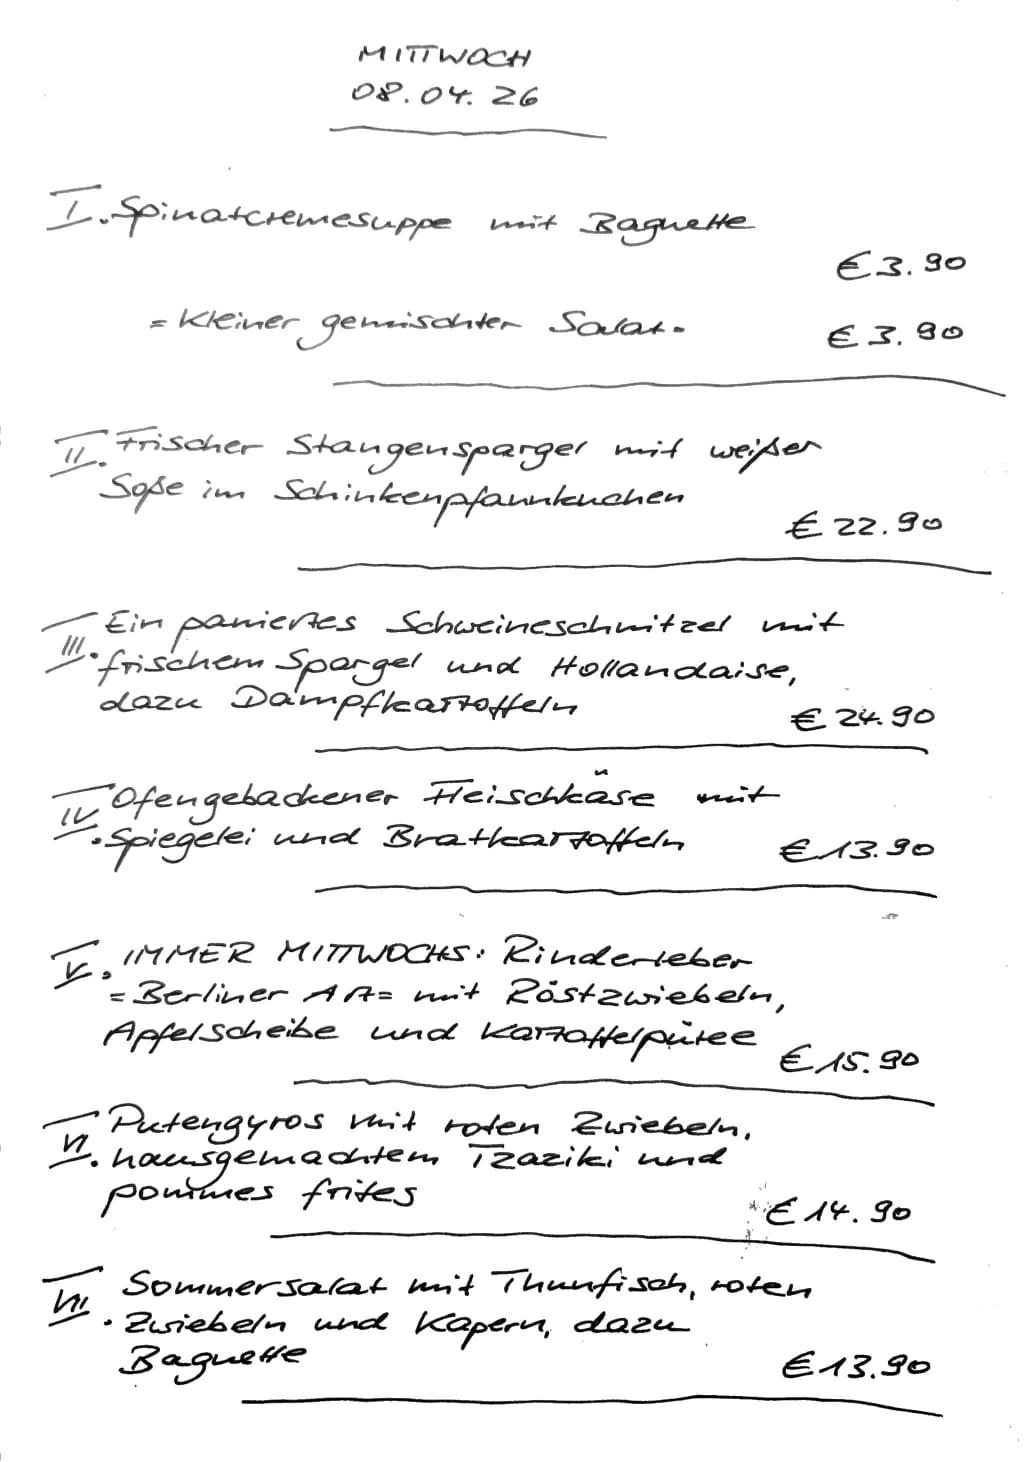 MITTWOCH
08.04.26
I. Spinatcremesuppe mit Baguette
€ 3.90
= Kleiner gemischter Salat.
€ 3.90
II. Frischer Stangenspargel mit weißer
Soße im Schinkenpfannkuchen
€ 22.90
III. Ein paniertes Schweineschnitzel mit
frischem Spargel und Hollandaise,
dazu Dampfkartoffeln
€ 24.90
IV. Ofengebackener Fleischkäse mit
Spiegelei und Bratkartoffeln
€ 13.90
V. IMMER MITTWOCHS: Rinderleber
= Berliner Art = mit Röstzwiebeln,
Apfelscheibe und Kartoffelpüree
€ 15.90
VI. Putengyros mit roten Zwiebeln,
hausgemachtem Tzaziki und
pommes frites
€ 14.90
VII. Sommersalat mit Thunfisch, roten
Zwiebeln und Kapern, dazu
Baguette
€ 13.90